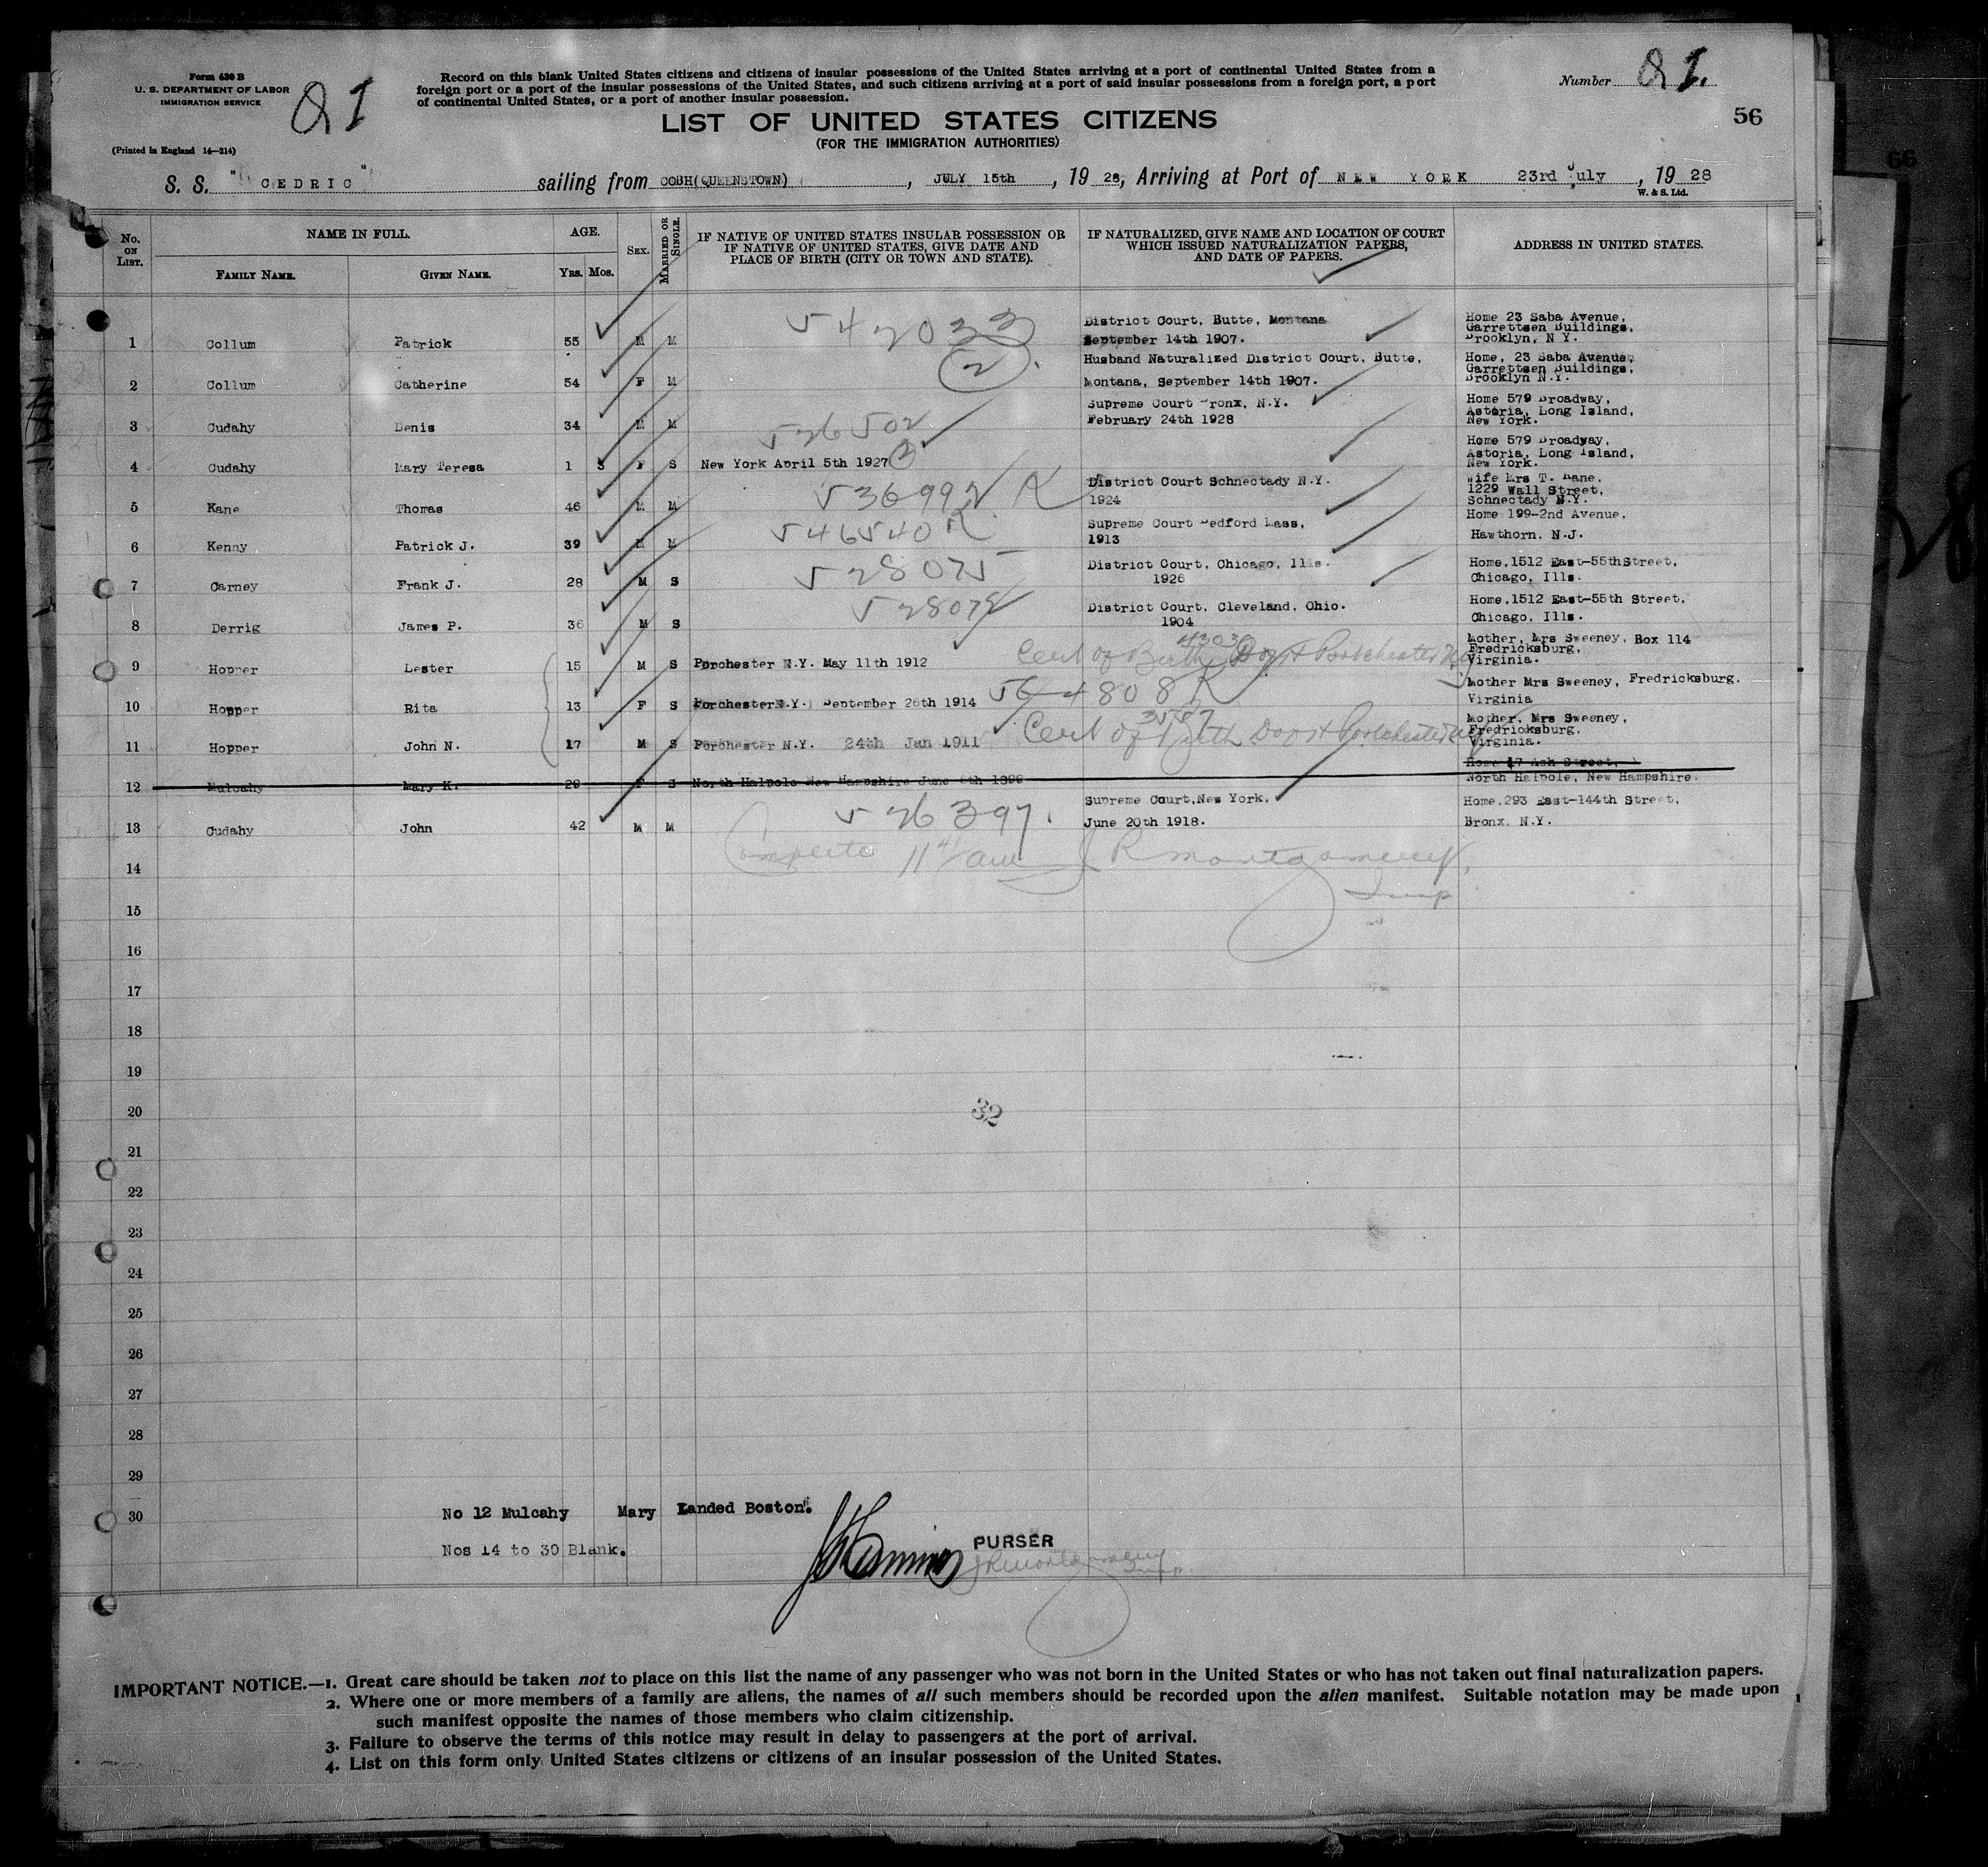 Form 630 B
U. S. DEPARTMENT OF LABOR
IMMIGRATION SERVICE
21
Record on this blank United States citizens and citizens of insular possessions of the United States arriving at a port of continental United States from a
foreign port or a port of the insular possessions of the United States, and such citizens arriving at a port of said insular possessions from a foreign port, a port
of continental United States, or a port of another insular possession.
Number 21.
56
LIST OF UNITED STATES CITIZENS
(FOR THE IMMIGRATION AUTHORITIES)
(Printed in England 14—214)
S. S. "CEDRIC" sailing from COBH(QUEENSTOWN), JULY 15th, 1928, Arriving at Port of NEW YORK 23rd July, 1928
W. & S. Ltd.
No. ON LIST.
NAME IN FULL.
FAMILY NAME. GIVEN NAME.
AGE.
YRS. MOS.
SEX.
MARRIED OR SINGLE.
IF NATIVE OF UNITED STATES INSULAR POSSESSION OR
IF NATIVE OF UNITED STATES, GIVE DATE AND
PLACE OF BIRTH (CITY OR TOWN AND STATE).
IF NATURALIZED, GIVE NAME AND LOCATION OF COURT
WHICH ISSUED NATURALIZATION PAPERS,
AND DATE OF PAPERS.
ADDRESS IN UNITED STATES.
1 Collum Patrick 55 M M 542033 District Court, Butte, Montana
September 14th 1907.
Home 23 Saba Avenue,
Garrettsen Buildings,
Brooklyn, N Y.
2 Collum Catherine 54 F M (2) Husband Naturalized District Court, Butte,
Montana, September 14th 1907.
Home, 23 Saba Avenue,
Garrettsen Buildings,
Brooklyn N.Y.
3 Cudahy Denis 34 M M 526502 Supreme Court Bronx, N.Y.
February 24th 1928
Home 579 Broadway,
Astoria, Long Island,
New York.
4 Cudahy Mary Teresa 1 3 F S New York April 5th 1927 (2)
Home 579 Broadway,
Astoria, Long Island,
New York.
5 Kane Thomas 46 M M 536992 R District Court Schnectady N.Y.
1924
Wife Mrs T. Kane,
1229 Wall Street,
Schnectady N.Y.
6 Kenny Patrick J. 39 M M 546540 R Supreme Court Bedford Mass,
1913
Home 199-2nd Avenue,
Hawthorn, N.J.
7 Carney Frank J. 28 M S 528075 District Court, Chicago, Ills.
1926
Home,1512 East-55thStreet,
Chicago, Ills.
8 Derrig James P. 36 M S 528072 District Court, Cleveland, Ohio.
1904
Home,1512 East-55th Street,
Chicago, Ills.
9 Hopper Lester 15 M S Porchester N.Y. May 11th 1912 Cert of Birth Portchester N.Y.
Mother, Mrs Sweeney, Box 114
Fredricksburg,
Virginia.
10 Hopper Rita 13 F S Porchester N.Y. September 26th 1914 564808 R
Mother Mrs Sweeney, Fredricksburg.
Virginia
11 Hopper John N. 17 M S Porchester N.Y. 24th Jan 1911 Cert of Birth Portchester N.Y.
Mother, Mrs Sweeney,
Fredricksburg,
Virginia.
12 Mulcahy Mary K. 29 F S North Halpole New Hampshire June 6th 1899
Home 17 Ash Street,
North Halpole, New Hampshire.
13 Cudahy John 42 M M 526397. Supreme Court,New York.
June 20th 1918.
Home,293 East-144th Street,
Bronx. N.Y.
Complete 11 am J R Montgomery,
Insp
14
15
16
17
18
19
20
32
21
22
23
24
25
26
27
28
29
30
No 12 Mulcahy Mary Landed Boston.
Nos 14 to 30 Blank.
PURSER
J R Montgomery
Insp.
IMPORTANT NOTICE.—1. Great care should be taken not to place on this list the name of any passenger who was not born in the United States or who has not taken out final naturalization papers.
2. Where one or more members of a family are aliens, the names of all such members should be recorded upon the alien manifest. Suitable notation may be made upon
such manifest opposite the names of those members who claim citizenship.
3. Failure to observe the terms of this notice may result in delay to passengers at the port of arrival.
4. List on this form only United States citizens or citizens of an insular possession of the United States.